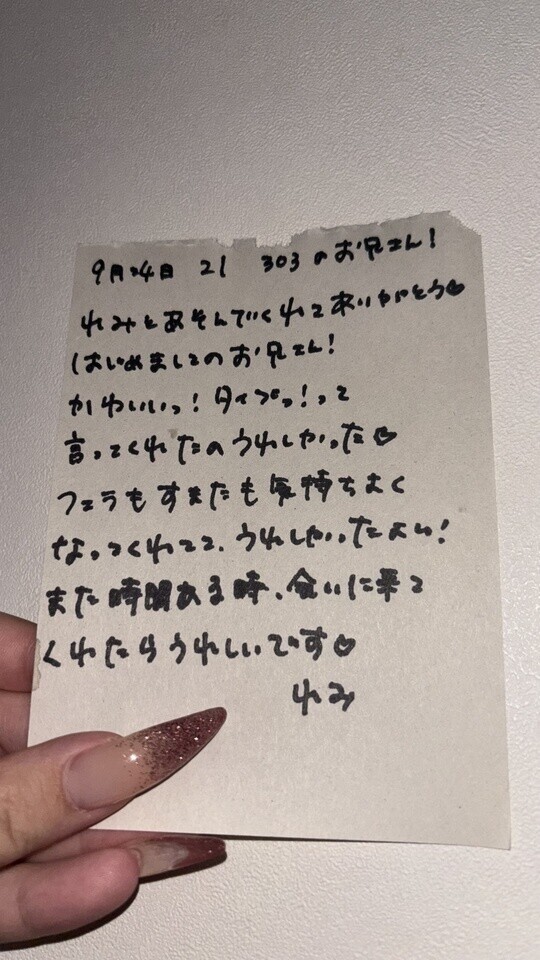 9月24日 21 303のお兄さん!
れみとあそんでくれてありがとう♡
はじめましてのお兄さん!
かわいいっ!タイプっ!って
言ってくれたのうれしかった♡
フェラもすまたも気持ちよく
なってくれてて、うれしかったよい!
また時間ある時、会いに来て
くれたらうれしいです♡
れみ